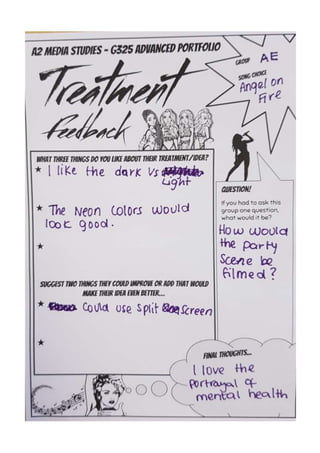 A2 MEDIA STUDIES - G325 ADVANCED PORTFOLIO
Treatment
Feedback
GROUP AE
SONG CHOICE
Angel on
Fire
WHAT THREE THINGS DO YOU LIKE ABOUT THEIR TREATMENT/IDEA?
★ I like the dark Vs
Light
★ The Neon colors would
look good.
★
SUGGEST TWO THINGS THEY COULD IMPROVE OR ADD THAT WOULD
MAKE THEIR IDEA EVEN BETTER...
★ could use split screen
★
QUESTION!
If you had to ask this
group one question,
what would it be?
How would
the party
scene be
filmed?
FINAL THOUGHTS...
I love the
portrayal of
mental health